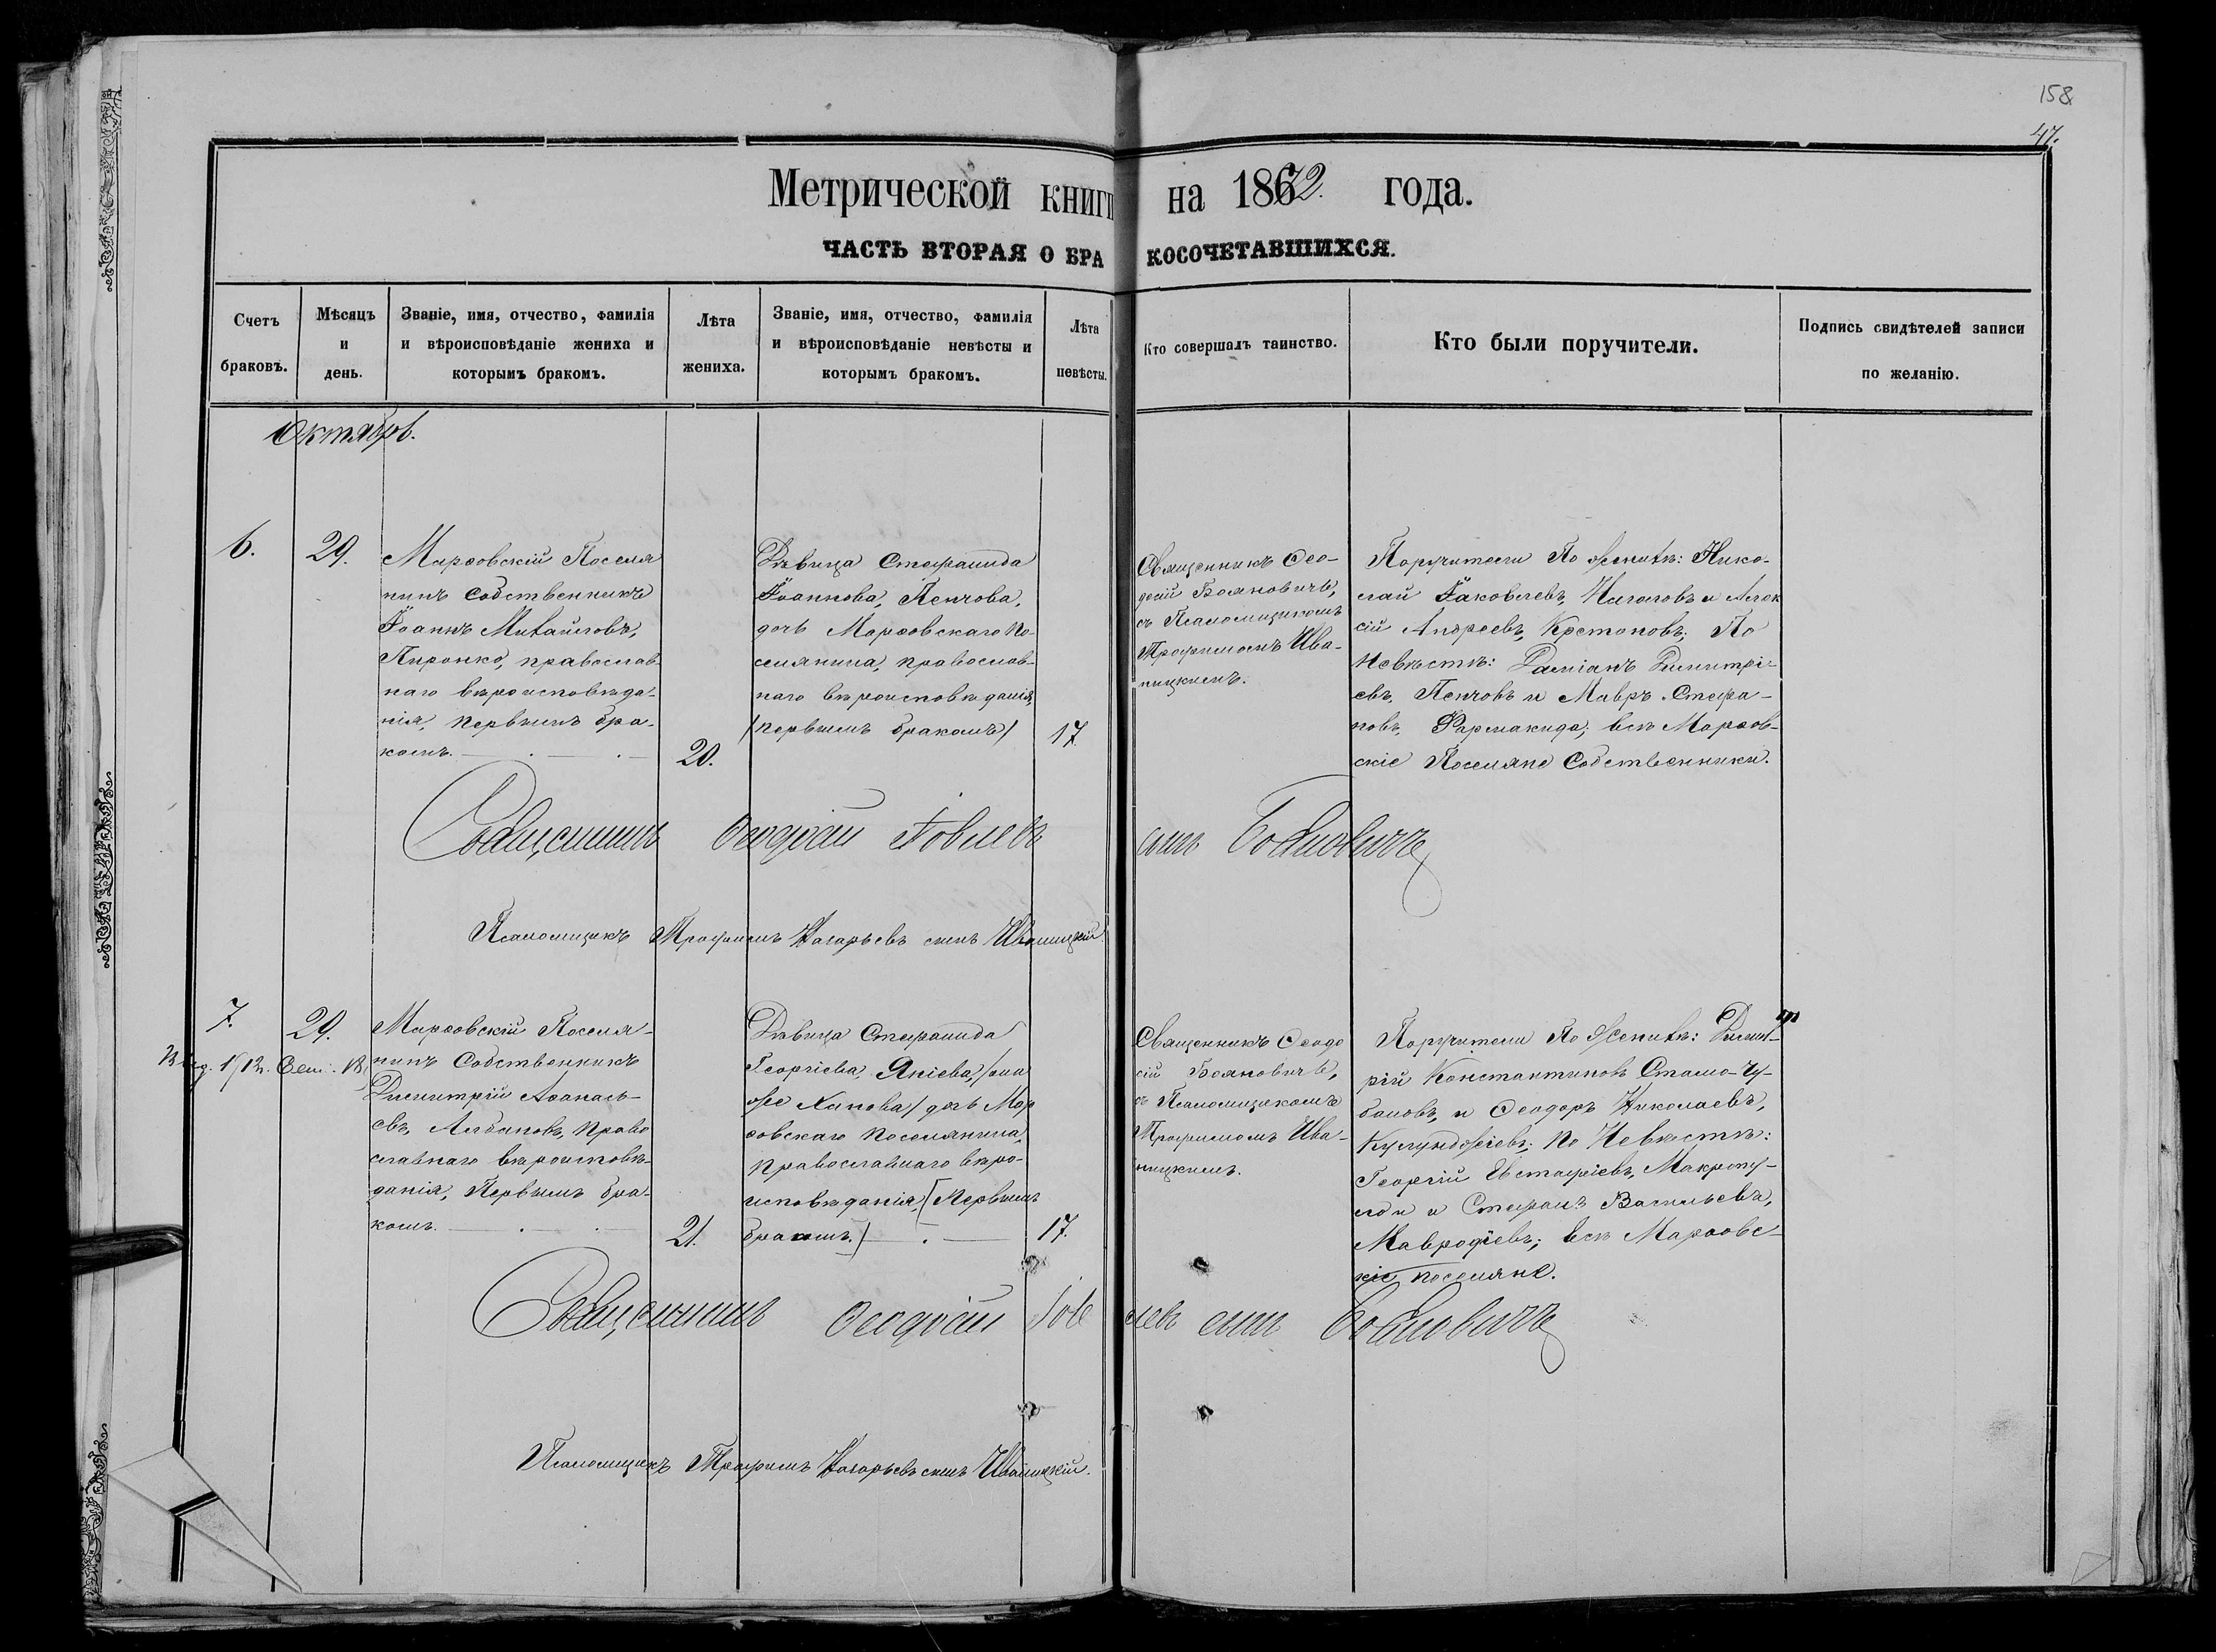 158
47.
Метрической книги на 1872. года.
ЧАСТЬ ВТОРАЯ О БРАКОСОЧЕТАВШИХСЯ.
Счетъ браковъ.
Мѣсяцъ и день.
Званіе, имя, отчество, фамилія
и вѣроисповѣданіе жениха и
которымъ бракомъ.
Лѣта жениха.
Званіе, имя, отчество, фамилія
и вѣроисповѣданіе невѣсты и
которымъ бракомъ.
Лѣта невѣсты.
Кто совершалъ таинство.
Кто были поручители.
Подпись свидѣтелей записи
по желанію.
Октябрь.
6.
29.
Марѳовскій Поселя
нинъ Собственникъ
Іоаннъ Михайловъ,
Пиронко, православ-
наго вѣроисповѣда-
нія, первымъ бра-
комъ.
20.
Дѣвица Стефанида
Іоаннова, Пенчова,
дочь Марѳовскаго По-
селянина, православ-
наго вѣроисповѣданія,
/первымъ бракомъ/
17.
Священникъ Ѳео-
досій Бояновичъ,
съ Псаломщикомъ
Трофимомъ Ива-
ницкимъ.
Поручители По Женихѣ: Нико-
лай Іаковлевъ, и Алек
сій Андреевъ, Крстоновъ; По
Невѣстѣ: Даміанъ Димитрі-
евъ, Пенчовъ и Мавръ Стефа-
новъ, Фармакида; всѣ Марѳов-
скіе Поселяне Собственники.
Священникъ Ѳеодосій Іовлевъ сынъ Бояновичъ
Псаломщикъ Трофимъ Назарьевъ сынъ Иваницкій
7.
29.
1912.
Марѳовскій Поселя-
нинъ Собственникъ
Димитрій Аѳанась-
евъ, Албановъ, право
славнаго вѣроисповѣ-
данія, Первымъ бра-
комъ.
21.
Дѣвица Стефанида
Георгіева, Яніева, /она
же Ханова/ дочь Мар
ѳовскаго поселянина,
православнаго вѣро-
исповѣданія, /Первымъ
бракомъ./
17.
Священникъ Ѳеодо
сій Бояновичъ,
съ Псаломщикомъ
Трофимомъ Ива-
ницкимъ.
Поручители По Женихѣ: Димит-
рій Константиновъ Стамо-Чу-
бановъ, и Ѳеодоръ Николаевъ,
Кулунджіевъ; По Невѣстѣ:
Георгій Евстафіевъ, Макропу-
ло и Стефанъ Васильевъ,
Мавродіевъ; всѣ Марѳовс-
кіе поселяне.
Священникъ Ѳеодосій Іовлевъ сынъ Бояновичъ
Псаломщикъ Трофимъ Назарьевъ сынъ Иваницкій.